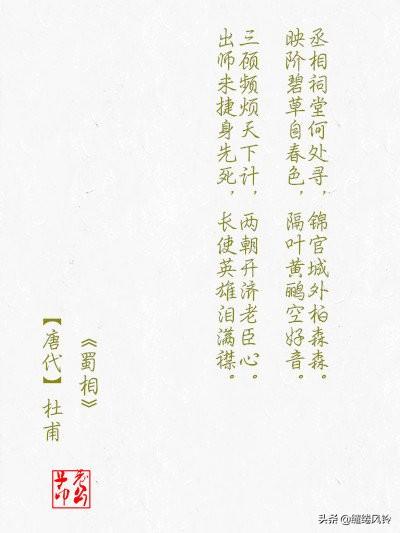 丞相祠堂何处寻，锦官城外柏森森。
映阶碧草自春色，隔叶黄鹂空好音。
三顾频烦天下计，两朝开济老臣心。
出师未捷身先死，长使英雄泪满襟。
《蜀相》
【唐代】杜甫
头条 @缱绻风铃